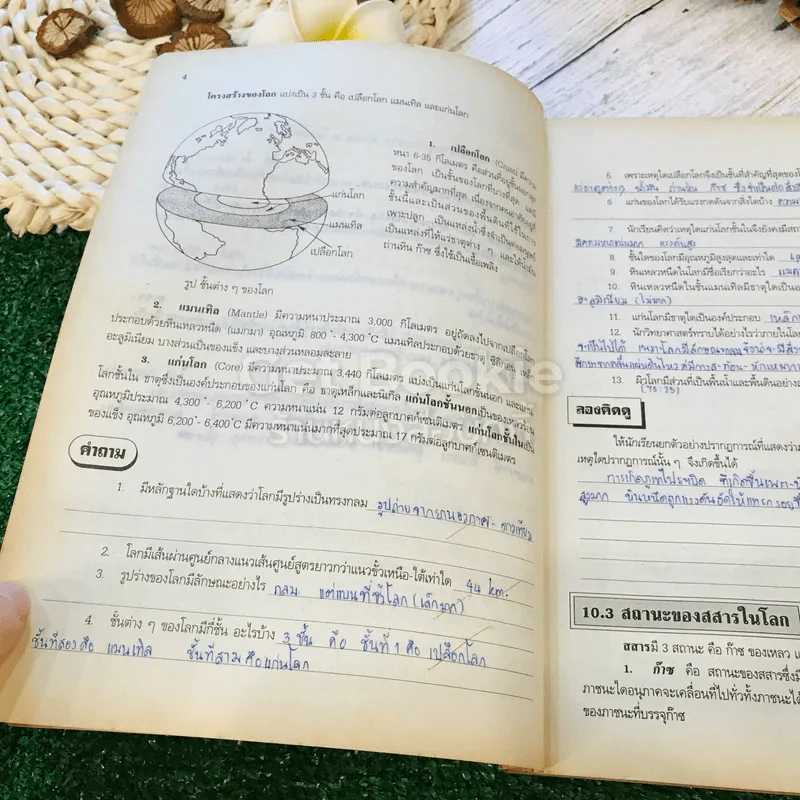 4
โครงสร้างของโลก แบ่งเป็น 3 ชั้น คือ เปลือกโลก แมนเทิล และแก่นโลก
1. เปลือกโลก (Crust) มีความ
หนา 6-35 กิโลเมตร คือส่วนที่อยู่ชั้นนอกสุด
ของโลก เป็นชั้นของโลกที่บางที่สุด แต่มี
ความสำคัญมากที่สุด เนื่องจากคนอาศัยอยู่ที่
ชั้นนี้และเป็นส่วนของพื้นดินที่ใช้ในการ
เพาะปลูก เป็นแหล่งน้ำซึ่งจำเป็นต่อมนุษย์
เป็นแหล่งที่ให้แร่ธาตุต่าง ๆ และให้น้ำมัน
ถ่านหิน ก๊าซ ซึ่งใช้เป็นเชื้อเพลิง
แก่นโลก
แมนเทิล
เปลือกโลก
รูป ชั้นต่าง ๆ ของโลก
2. แมนเทิล (Mantle) มีความหนาประมาณ 3,000 กิโลเมตร อยู่ถัดลงไปจากเปลือกโลก
ประกอบด้วยหินเหลวหนืด (แมกมา) อุณหภูมิ 800°- 4,300°C แมนเทิลประกอบด้วยธาตุ ซิลิกอน เหล็ก
อะลูมิเนียม บางส่วนเป็นของแข็ง และบางส่วนหลอมละลาย
3. แก่นโลก (Core) มีความหนาประมาณ 3,440 กิโลเมตร แบ่งเป็นแก่นโลกชั้นนอก และแก่น
โลกชั้นใน ธาตุซึ่งเป็นองค์ประกอบของแก่นโลก คือ ธาตุเหล็กและนิเกิล แก่นโลกชั้นนอกเป็นของเหลวข้น
อุณหภูมิประมาณ 4,300°- 6,200°C ความหนาแน่น 12 กรัมต่อลูกบาศก์เซนติเมตร แก่นโลกชั้นในเป็น
ของแข็ง อุณหภูมิ 6,200°- 6,400°C มีความหนาแน่นมากที่สุดประมาณ 17 กรัมต่อลูกบาศก์เซนติเมตร
คำถาม
1. มีหลักฐานใดบ้างที่แสดงว่าโลกมีรูปร่างเป็นทรงกลม รูปถ่ายจากยานอวกาศ- ดาวเทียม
2. โลกมีเส้นผ่านศูนย์กลางแนวเส้นศูนย์สูตรยาวกว่าแนวขั้วเหนือ-ใต้เท่าใด 44 km.
3. รูปร่างของโลกมีลักษณะอย่างไร กลม แต่แบนที่ขั้วโลก (เล็กมาก)
4. ชั้นต่าง ๆ ของโลกมีกี่ชั้น อะไรบ้าง 3 ชั้น คือ ชั้นที่ 1 คือ เปลือกโลก
ชั้นที่สองคือ แมนเทิล ชั้นที่สามคือแก่นโลก
5. เพราะเหตุใดเปลือกโลกจึงเป็นชั้นที่สำคัญที่สุดของ
น้ำมัน ถ่านหิน ก๊าซ
6. แก่นของโลกได้รับแรงกดดันจากสิ่งใดบ้าง
7. นักเรียนคิดว่าเหตุใดแก่นโลกชั้นในจึงยังคงมี
แรงดันสูง
8. ชั้นใดของโลกมีอุณหภูมิสูงสุดและเท่าใด
9. หินเหลวหนืดในโลกมีชื่อเรียกว่าอะไร
10. หินเหลวหนืดในชั้นแมนเทิลมีธาตุใดเป็น
อะลูมิเนียม
11. แก่นโลกมีธาตุใดเป็นองค์ประกอบ เหล็ก
12. นักวิทยาศาสตร์ทราบได้อย่างไรว่าภายในโลก
13. ผิวโลกมีส่วนที่เป็นพื้นน้ำและพื้นดินอย่าง
(75:25)
ลองคิดดู
ให้นักเรียนยกตัวอย่างปรากฏการณ์ที่แสดงว่า
เหตุใดปรากฏการณ์นั้น ๆ จึงเกิดขึ้นได้
การเกิดภูเขาไฟระเบิด ที่เกิดขึ้นเพราะ
สูงมาก หินหนืดถูกแรงดันอัดให้แทรกรอย
10.3 สถานะของสสารในโลก
สสารมี 3 สถานะ คือ ก๊าซ ของเหลว
1. ก๊าซ คือ สถานะของสสารซึ่งมี
ภาชนะใดอนุภาคจะเคลื่อนที่ไปทั่วทั้งภาชนะได้
ของภาชนะที่บรรจุก๊าซ
Bookie